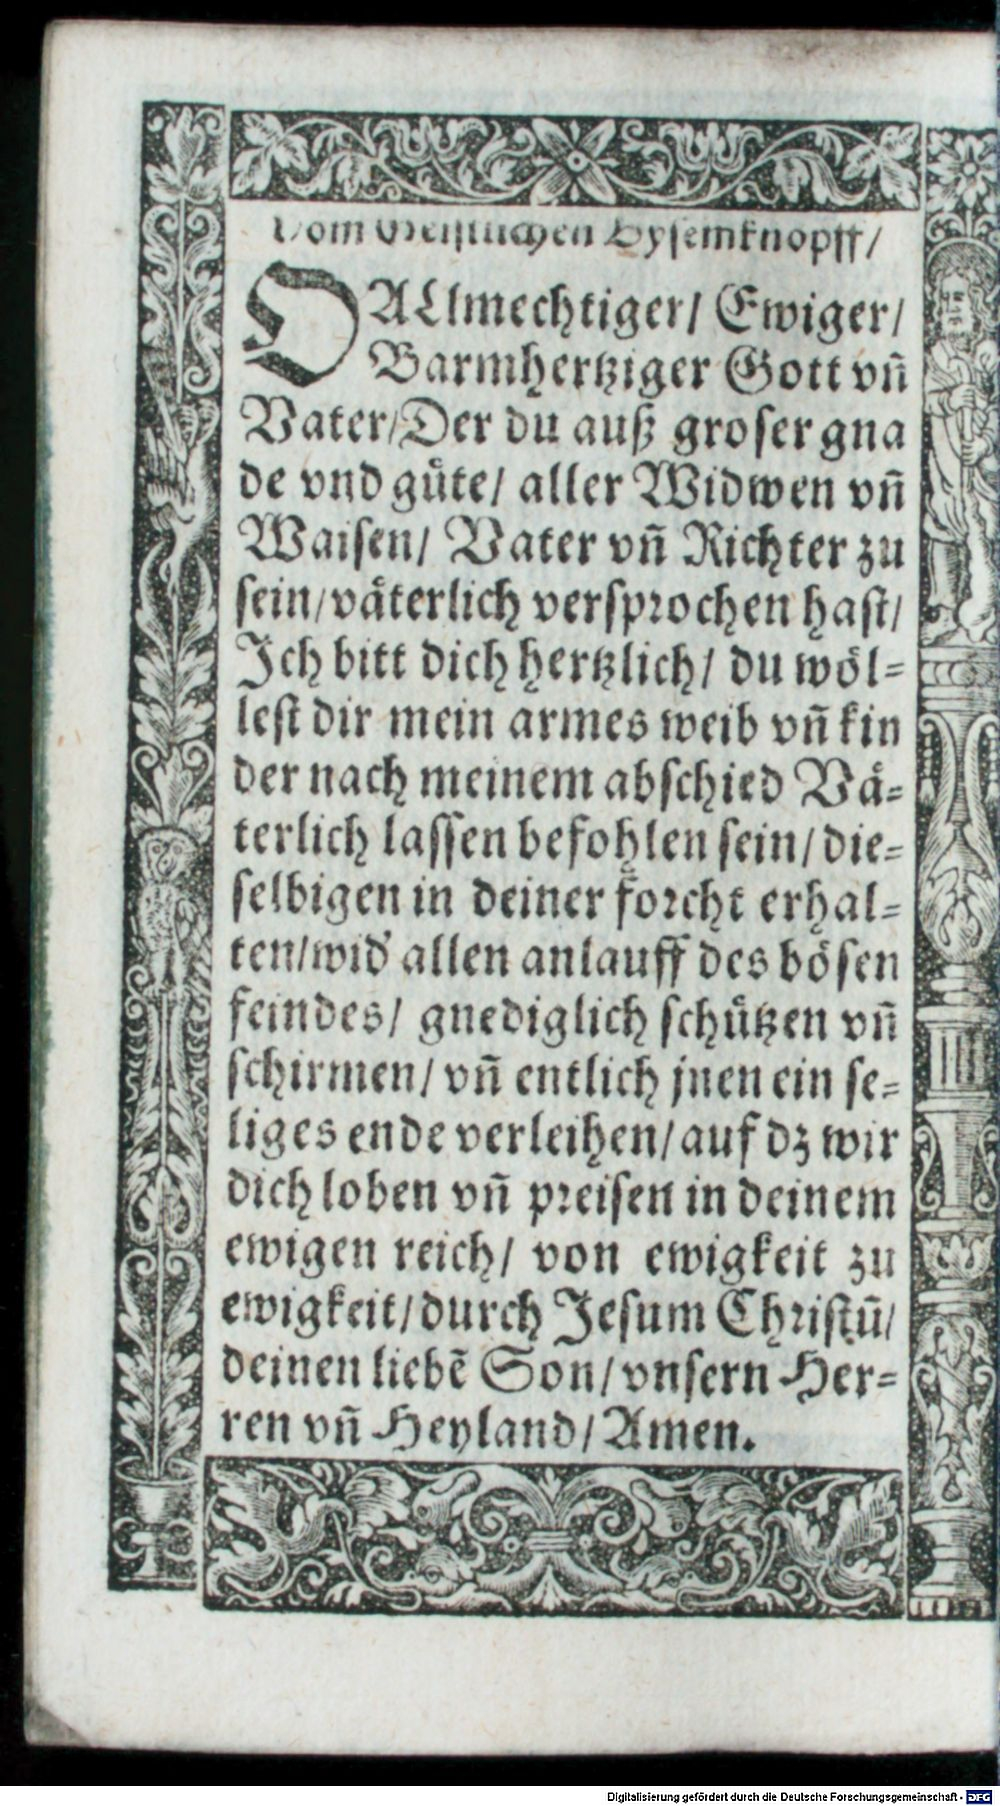 Vom Geistlichen Bysemknopff/
O ALlmechtiger/ Ewiger/
Barmhertziger Gott vñ
Vater/Der du auß groser gna
de vnd guͤte/ aller Widwen vñ
Waisen/ Vater vñ Richter zu
sein/vaͤterlich versprochen hast/
Ich bitt dich hertzlich/ du woͤl⸗
lest dir mein armes weib vñ kin
der nach meinem abschied Vaͤ⸗
terlich lassen befohlen sein/die⸗
selbigen in deiner forcht erhal⸗
ten/wid' allen anlauff des boͤsen
feindes/ gnediglich schuͤtzen vñ
schirmen/ vñ entlich jnen ein se⸗
liges ende verleihen/auf dz wir
dich loben vñ preisen in deinem
ewigen reich/ von ewigkeit zu
ewigkeit/durch Jesum Christũ/
deinen liebẽ Son/vnsern Her⸗
ren vñ Heyland/Amen.
Digitalisierung gefördert durch die Deutsche Forschungsgemeinschaft - DFG